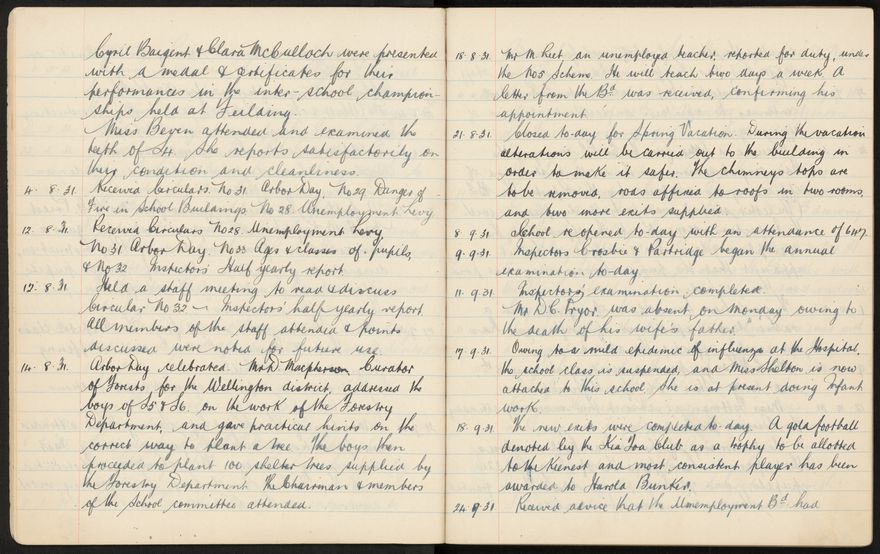 Cyril Bargent & Clara McCulloch were presented
with a medal & certificates for their
performances in the inter-school champion-
ships held at Feilding.
Miss Beven attended and examined the
teeth of S4. She reports satisfactorily on
their condition and cleanliness.
4. 8. 31. Received Circulars. No 31 Arbor Day No 29 Danger of
Fire in School Buildings No 28 Unemployment Levy
12. 8. 31. Received Circulars No 28 Unemployment Levy
No 31 Arbor Day. No 33 Ages & classes of pupils,
& No 32 Inspectors' Half yearly report
12. 8. 31. Held a staff meeting to read & discuss
Circular No 32 – Inspectors' half yearly report.
All members of the staff attended & points
discussed were noted for future use.
14. 8. 31. Arbor Day celebrated. Mr D. Macpherson Curator
of Forests for the Wellington district, addressed the
boys of S5 & S6 on the work of the Forestry
Department, and gave practical hints on the
correct way to plant a tree. The boys then
proceeded to plant 100 shelter trees supplied by
the Forestry Department. The Chairman & members
of the School committee attended.
18. 8. 31. Mr M. an unemployed teacher, reported for duty, under
the No 5 Scheme. He will teach two days a week. A
letter from the Bd. was received, confirming his
appointment.
21. 8. 31. Closed to-day for Spring Vacation. During the vacation
alterations will be carried out to the building in
order to make it safer. The chimneys tops are
to be removed, rods affixed to roofs in two rooms,
and two more exits supplied.
8 9. 31. School re opened to-day with an attendance of 647.
9. 9. 31. Inspectors Crosbie & Partridge began the annual
examination to-day.
11. 9. 31. Inspectors' examination completed.
Mr D.C. Pryor was absent on Monday owing to
the death of his wife's father.
17. 9. 31. Owing to a mild epidemic of influenza at the Hospital,
the school class is suspended, and Miss Shelton is now
attached to this school. She is at present doing Infant
work.
18. 9. 31. The new exits were completed to-day. A gold football
donated by the Kia Toa Club as a trophy to be allotted
to the keenest and most consistent player has been
awarded to Harold Bunker.
24. 9 31. Received advice that the Unemployment Bd. had